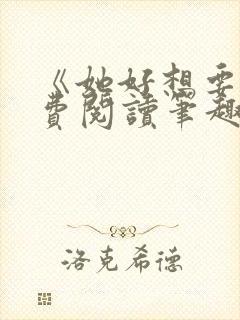 《她好想要
費閱讀筆趣
洛克希德